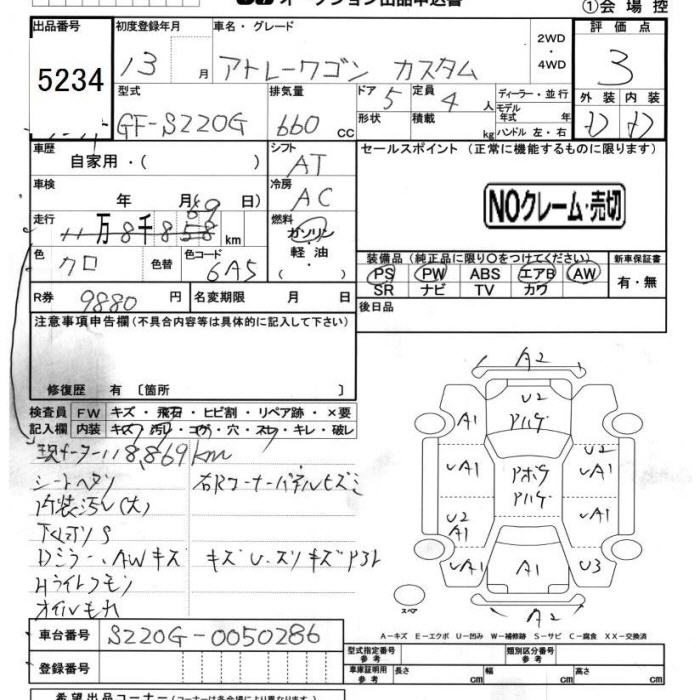 オークション出品申込書
①会場控
出品番号 5234
初度登録年月 13 月
車名・グレード アトレーワゴン カスタム
2WD・4WD
評価点 3
型式 GF-S220G
排気量 660 cc
ドア 5 形状
定員 4 人 積載 kg
ディーラー・並行
モデル年式 年式
ハンドル 左・右
外装 内装
車歴 自家用・( )
シフト AT
セールスポイント (正常に機能するものに限ります)
NOクレーム・売切
車検 年 月
冷房 AC
走行 11万8千858 km
69
燃料 ガソリン・軽油・( )
色 クロ 色替 色コード 6A5
装備品(純正品に限り〇をつけてください) 新車保証書
PS PW ABS エアB AW 有・無
SR ナビ TV カワ
R券 9880 円 名変期限 月 日
後日品
注意事項申告欄(不具合内容等は具体的に記入して下さい)
修復歴 有 〔箇所 〕
検査員 FW キズ・飛石・ヒビ割・リペア跡・×要
記入欄 内装 キズ・汚レ・コゲ・穴・スレ・キレ・破レ
現メーター118,869km
シートヘタリ 右Rコーナーパネルヒズミ
内装汚レ(大)
下廻りS
Dミラー、AWキズ キズU.スリキズ
Hライトクモリ
オイルもれ
A2
U2
アハゲ
A1 A1
U2
UA1 アホラ UA1
アハゲ
U2
A1 UA1
UA1 A1 U3
スペア A2
A-キズ E-エクボ U-凹み W-補修跡 S-サビ C-腐食 XX-交換済
車台番号 S220G-0050286
型式指定番号 参考 類別区分番号 参考
車庫証明用 参考 長さ cm 幅 cm 高さ cm
登録番号
希望出品コーナー